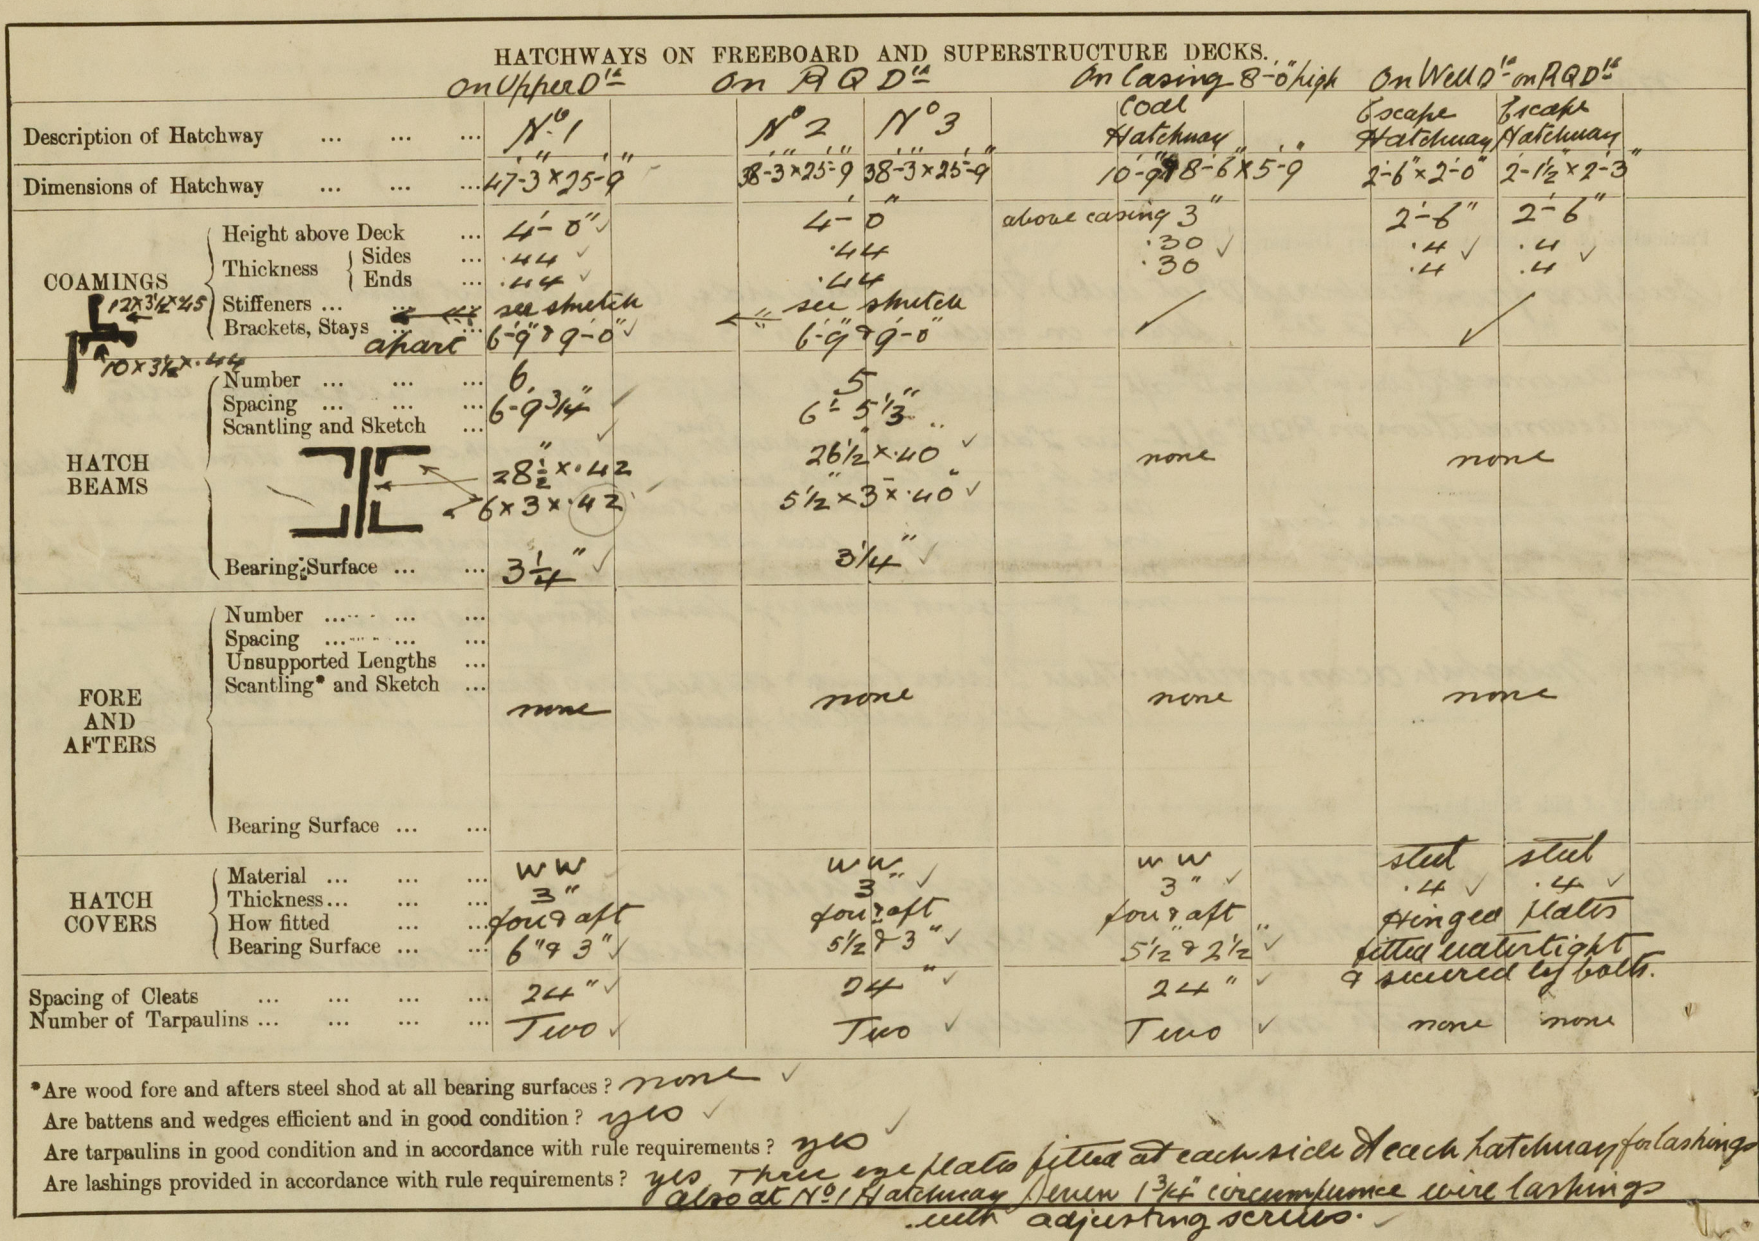 HATCHWAYS ON FREEBOARD AND SUPERSTRUCTURE DECKS.
On Upper Dk On R Q Dk On Casing 8'-0" high On Well Dk on RQDk
Description of Hatchway ... ... ... No 1 No 2 No 3 Coal Hatchway Escape Hatchway Escape Hatchway
Dimensions of Hatchway ... ... ... 47'-3" x 25'-9" 38'-3" x 25'-9" 38'-3" x 25'-9" 10'-9" 8'-6" x 5'-9" 2'-6" x 2'-0" 2'-1½" x 2'-3"
COAMINGS
Height above Deck ... 4'-0" 4'-0" above casing 3" 2'-6" 2'-6"
Thickness Sides ... .44 .44 .30 .4 .4
Ends ... .44 .44 .30 .4 .4
12 x 3½ x 45 Stiffeners ... ... ... see sketch see sketch
Brackets, Stays ... ... apart 6'-9" & 9'-0" 6'-9" & 9'-0"
10 x 3½ x .44
HATCH BEAMS
Number ... ... ... 6 5
Spacing ... ... ... 6'-9¾" 6'-5⅓"
Scantling and Sketch ...
28½" x .42 26½" x .40 none none
6 x 3 x .42 5½" x 3" x .40"
Bearing Surface ... ... 3¼" 3¼"
FORE AND AFTERS
Number ... ... ...
Spacing ... ... ...
Unsupported Lengths ...
Scantling* and Sketch ...
none none none none
Bearing Surface ... ...
HATCH COVERS
Material ... ... ... W W W W W W steel steel
Thickness... ... ... 3" 3" 3" .4 .4
How fitted ... ... fore & aft fore & aft fore & aft Hinged plates
Bearing Surface ... ... 6" & 3" 5½ & 3" 5½" & 2½" fitted watertight
& secured by bolts.
Spacing of Cleats ... ... ... ... 24" 24" 24"
Number of Tarpaulins ... ... ... ... Two Two Two none none
*Are wood fore and afters steel shod at all bearing surfaces? none
Are battens and wedges efficient and in good condition? yes
Are tarpaulins in good condition and in accordance with rule requirements? yes
Are lashings provided in accordance with rule requirements? yes Three eye plates fitted at each side of each hatchway for lashings
also at No 1 Hatchway Seven 1¾" circumference wire lashings
with adjusting screws.